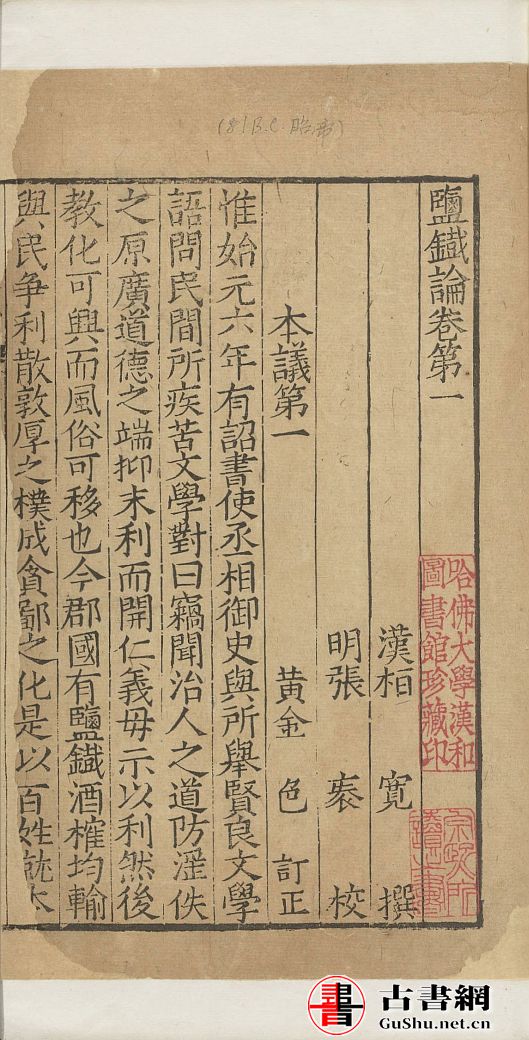 (81 B.C. 昭帝)
鹽鐵論卷第一
漢桓 寬 撰
明張 袠 校
黃金 色 訂正
本議第一
惟始元六年有詔書使丞相御史與所舉賢良文學
語問民間所疾苦文學對曰竊聞治人之道防淫佚
之原廣道德之端抑末利而開仁義毋示以利然後
教化可興而風俗可移也今郡國有鹽鐵酒榷均輸
與民争利散敦厚之樸成貪鄙之化是以百姓就本
哈佛大學漢和
圖書館珍藏印
古書網
GuShu.net.cn